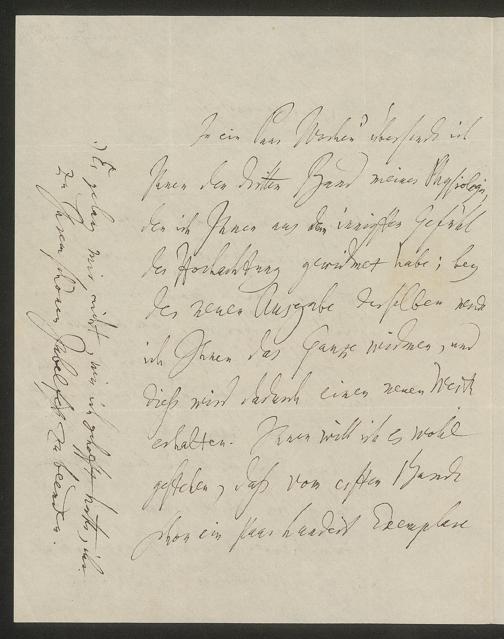 In ein Paar Wochen übersende ich
Ihnen den dritten Band meiner Physiologie,
den ich Ihnen aus dem innigsten Gefühl
der Hochachtung gewidmet habe; bey
der neuen Ausgabe desselben werde
ich Ihnen das Ganze widmen, und
dieß wird dadurch einen neuen Werth
erhalten. Ihnen will ich es wohl
gestehen, daß vom ersten Bande
schon ein paar hundert Exemplare
*) Es gelang mir nicht, wie ich gehofft hatte, ihn
zu Ihrem schönen Jubelfest zu beenden.